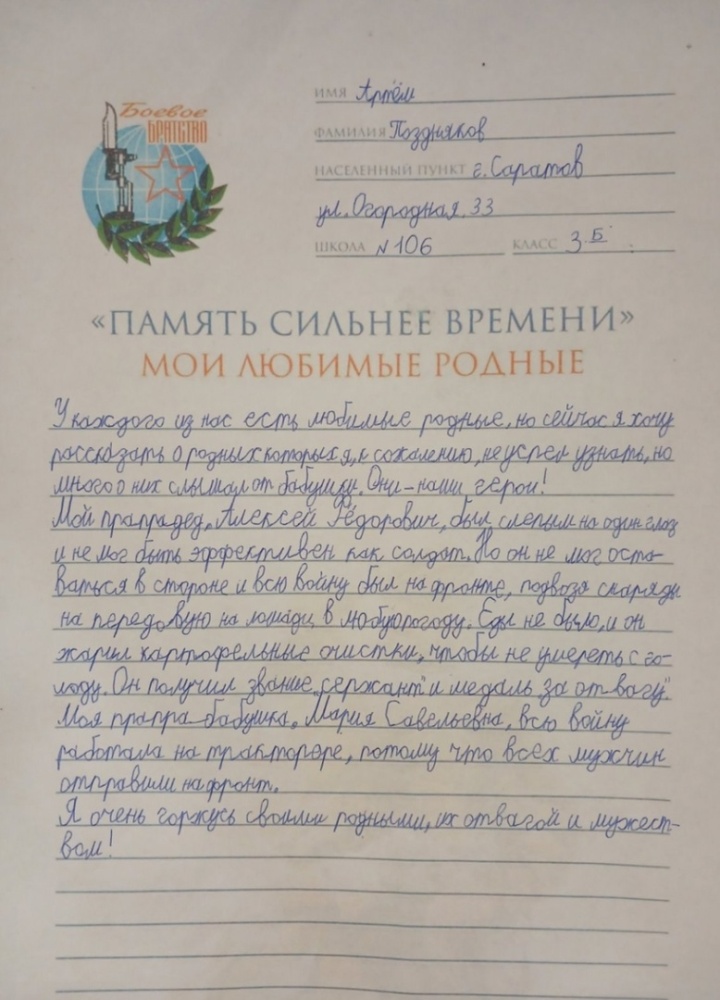 Боевое
БРАТСТВО
ИМЯ Артём
ФАМИЛИЯ Поздняков
НАСЕЛЕННЫЙ ПУНКТ г. Саратов
ул. Огородная, 33
ШКОЛА N 106 КЛАСС 3 Б
«ПАМЯТЬ СИЛЬНЕЕ ВРЕМЕНИ»
МОИ ЛЮБИМЫЕ РОДНЫЕ
У каждого из нас есть любимые родные, но сейчас я хочу
рассказать о родных которых я, к сожалению, не успел узнать, но
много о них слышал от бабушки. Они – наши герои!
Мой прапрадед, Алексей Фёдорович, был слепым на один глаз
и не мог быть эффективен как солдат. Но он не мог оста-
ваться в стороне и всю войну был на фронте, подвозя снаряды
на передовую на лошади, в любую погоду. Еды не было, и он
жарил картофельные очистки, чтобы не умереть с го-
лоду. Он получил звание „сержант" и медаль за отвагу".
Моя прапра-бабушка, Мария Савельевна, всю войну
работала на тракторе, потому что всех мужчин
отправили на фронт.
Я очень горжусь своими родными, их отвагой и мужест-
вом!